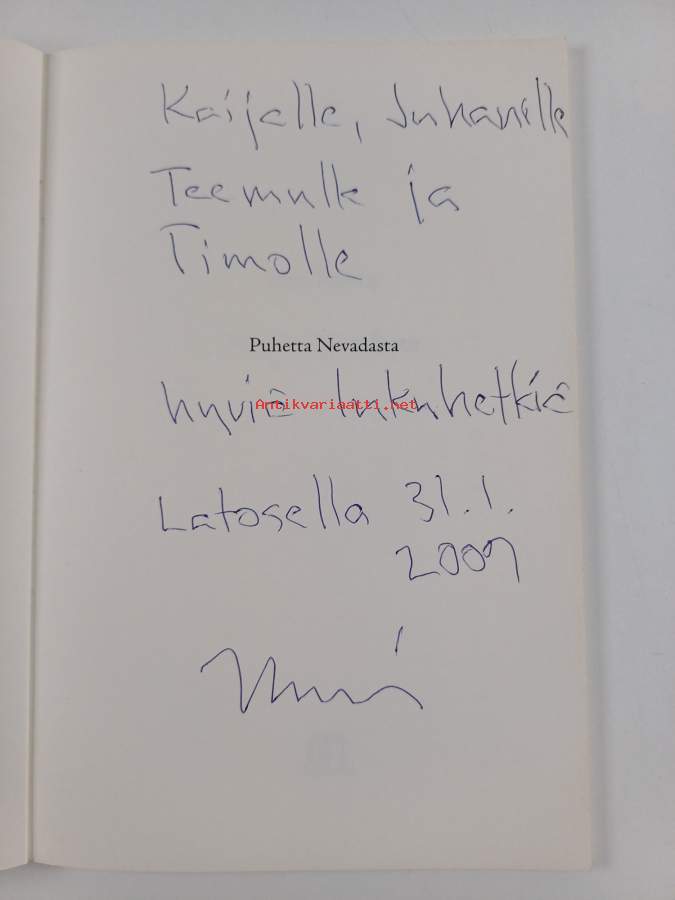 Kaijalle, Juhanille
Teemulle ja
Timolle
Puhetta Nevadasta
hyviä lukuhetkiä
Antikvariaatti.net
Latosella 31.1.
2009